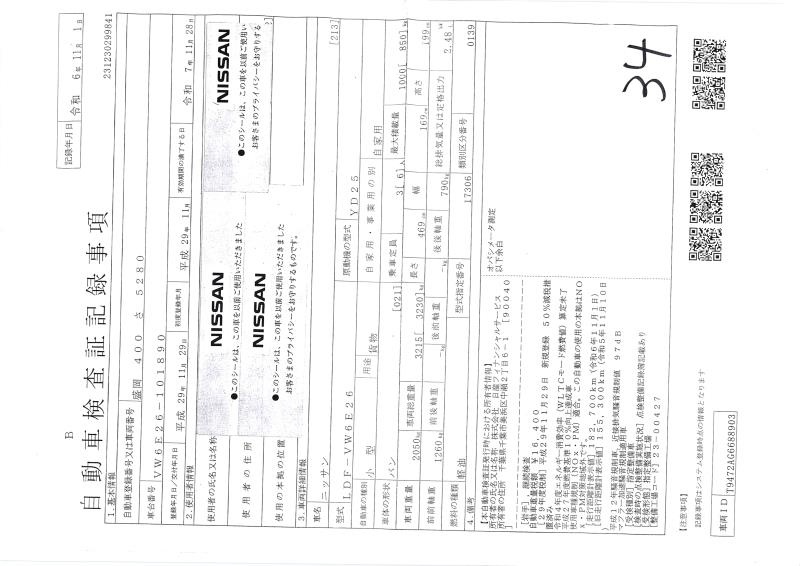 B
自動車検査証記録事項
記録年月日 令和 6年 11月 1日
231230299841
1.基本情報
自動車登録番号又は車両番号 盛岡 400 さ 5280
車台番号 VW6E26-101890
登録年月日/交付年月日 平成 29年 11月 29日 初度登録年月 平成 29年 11月 有効期間の満了する日 令和 7年 11月 28日
2.使用者情報
使用者の氏名又は名称
使用者の住所
使用の本拠の位置
NISSAN
●このシールは、この車を以前ご使用いただきました
NISSAN
●このシールは、この車を以前ご使用いただきました
お客さまのプライバシーをお守りするものです。
NISSAN
●このシールは、この車を以前ご使用い
お客さまのプライバシーをお守りする
3.車両詳細情報
車名 ニッサン [213]
型式 LDF-VW6E26 原動機の型式 YD25
自動車の種別 小型 用途 貨物 自家用・事業用の別 自家用
車体の形状 バン [021] 乗車定員 3[6]人 最大積載量 1000[850]kg
車両重量 2050kg 車両総重量 3215[3230]kg 長さ 469cm 幅 169cm 高さ 199cm
前前軸重 1260kg 前後軸重 -kg 後前軸重 -kg 後後軸重 790kg 総排気量又は定格出力 2.48L
燃料の種類 軽油 型式指定番号 17306 類別区分番号 0139
4.備考
【本自動車検査証発行時における所有者情報】
所有者の氏名又は名称 株式会社 日産フィナンシャルサービス
所有者の住所 千葉県千葉市美浜区中瀬2丁目6-1 [90040
[岩手] 継続検査
自動車重量税額 ¥16,400
[29年度税制] 平成29年11月29日 新規登録 50%減税措
置済
令和4年度エネルギー消費効率(WLTCモード燃費値) 算定未了
平成27年度燃費基準10%向上達成車
使用車種規制(NOx・PM)適合、この自動車の使用の本拠はNO
x・PM対策地域外です。
[走行距離計表示値] 182,700km (令和6年11月1日)
[旧走行距離計表示値] 155,300km (令和5年11月10日
平成12年騒音規制車、近接排気騒音規制値 97dB
マフラー加速騒音規制適用車
[受検種別] 指定整備車
[検査時の点検整備実施状況] 点検整備記録簿記載あり
[受検形態] 指定整備工場
整備工場コード] 23-00427
オパシメータ測定
以下余白
34
【注意事項】
記録事項はシステム登録時点の情報となります
車両ID T9472AG6688903